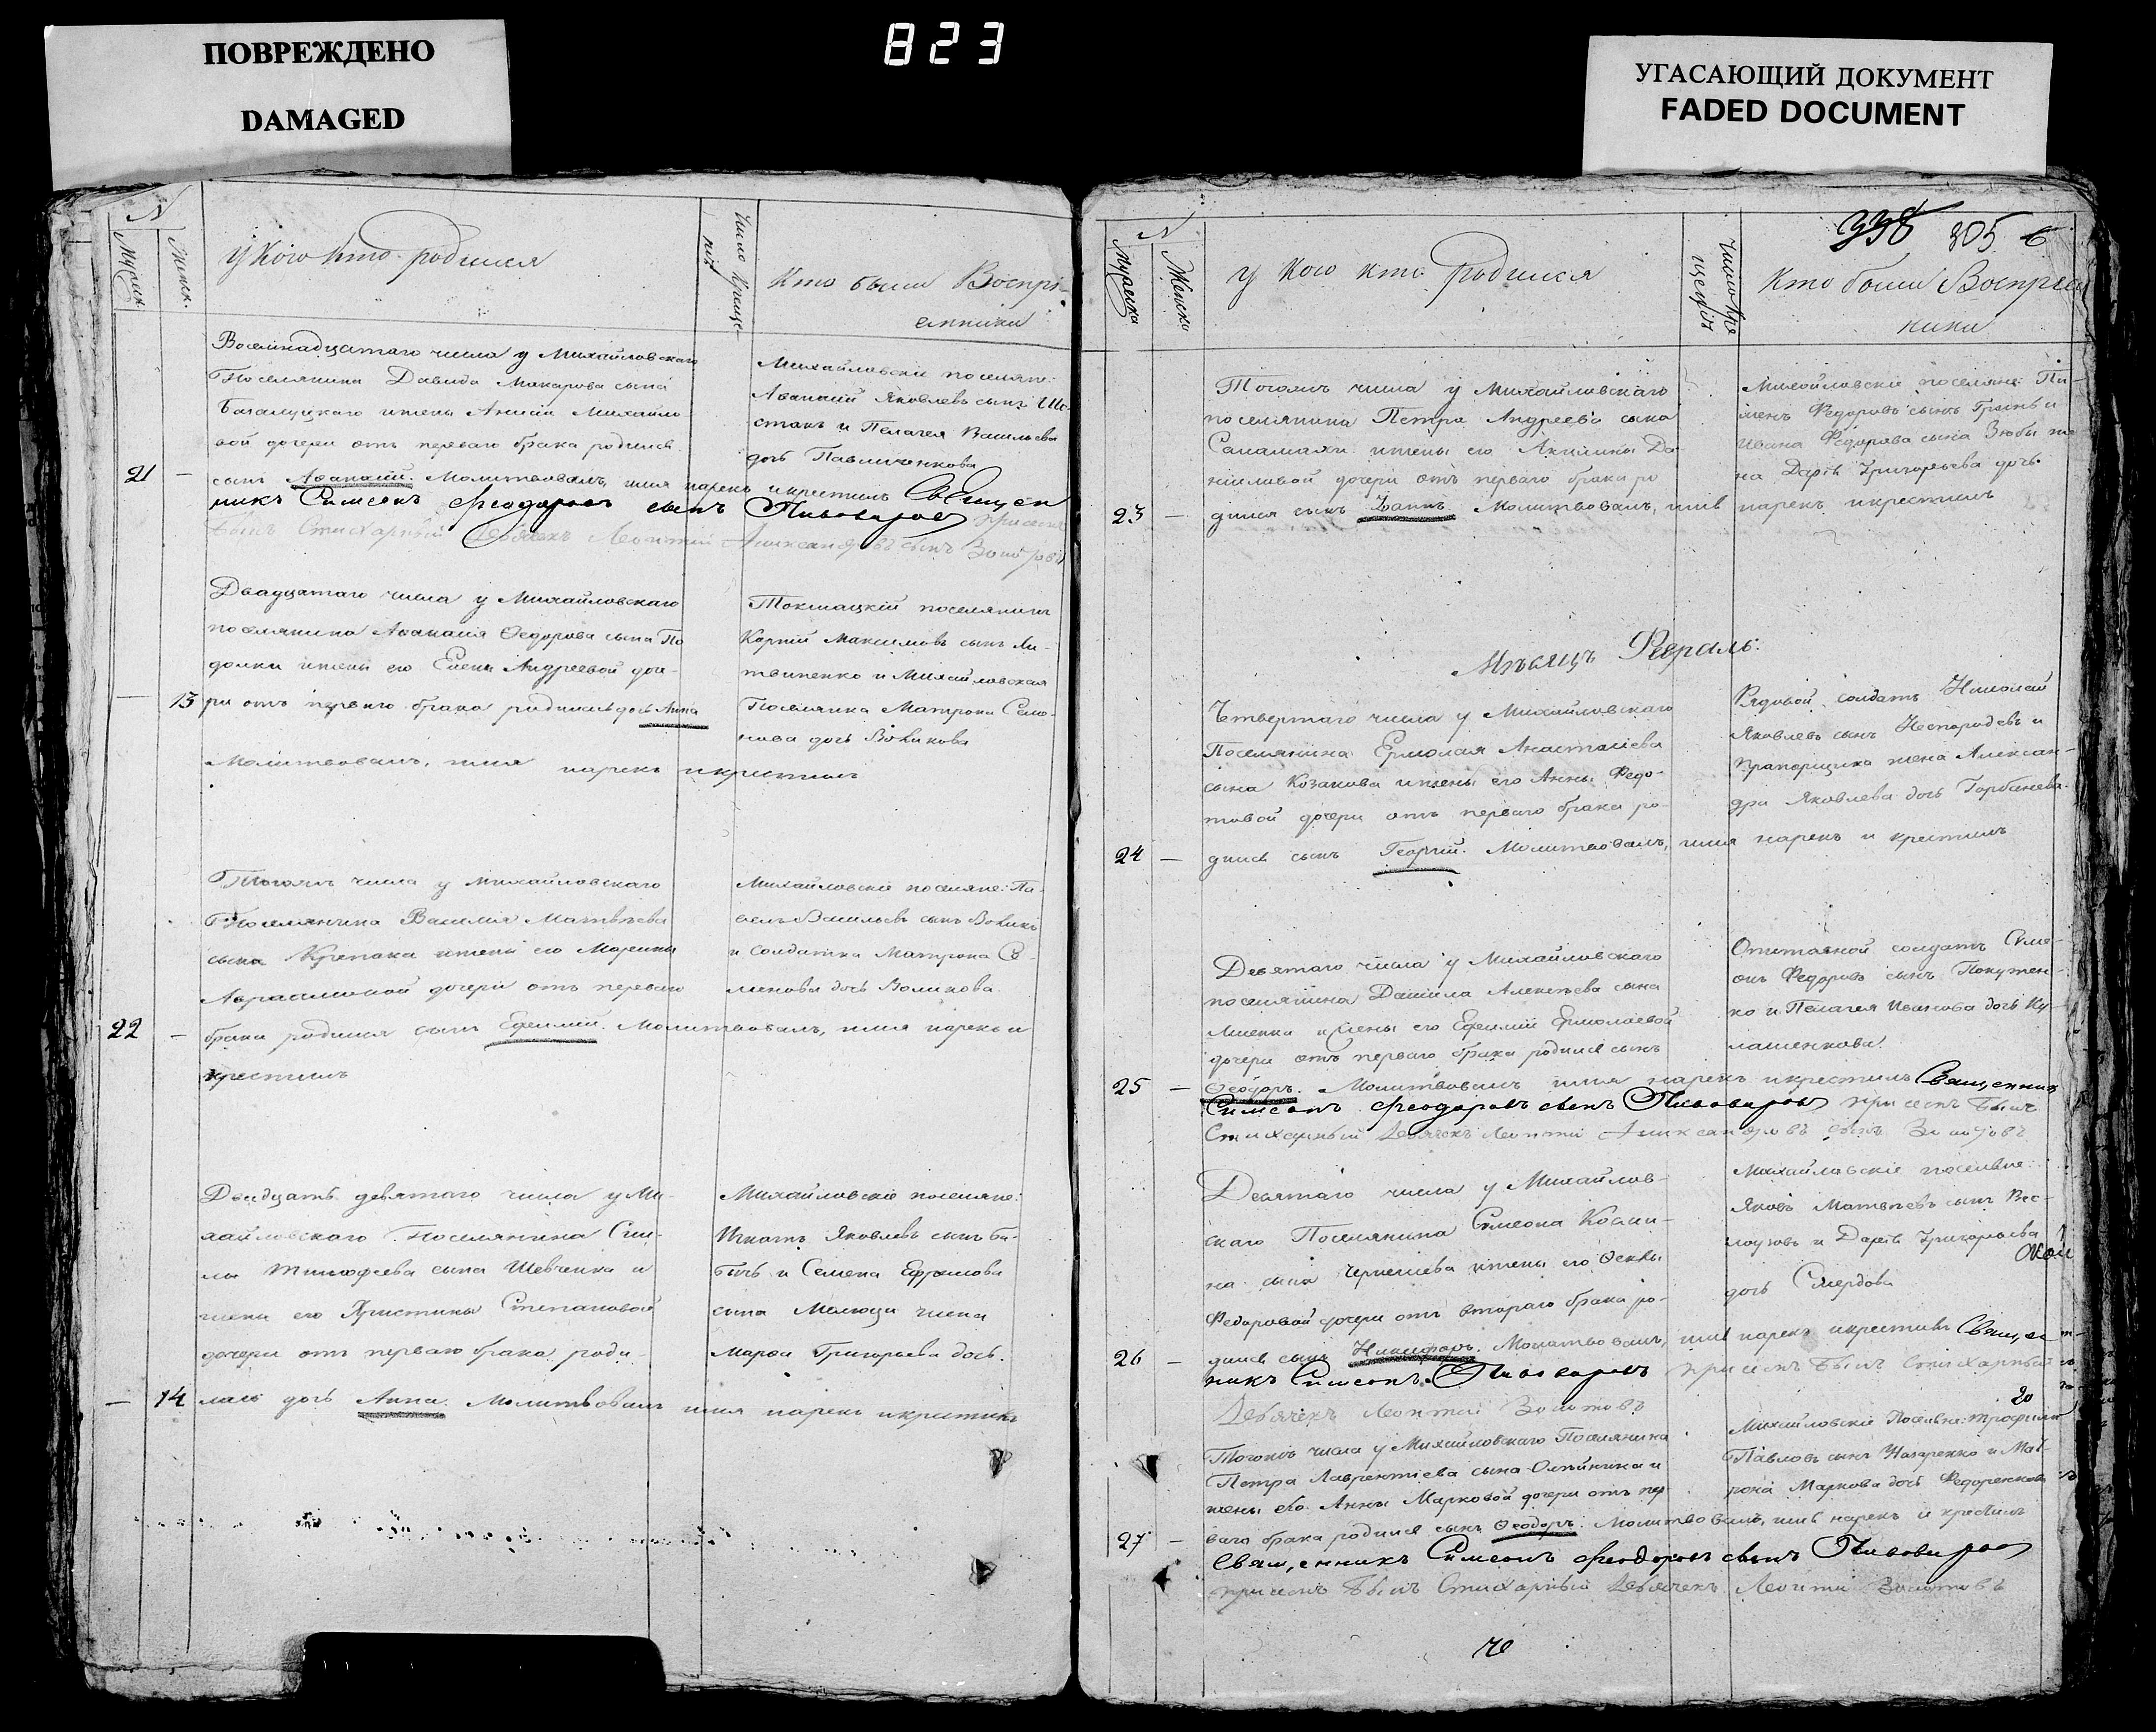 ПОВРЕЖДЕНО
DAMAGED
823
УГАСАЮЩИЙ ДОКУМЕНТ
FADED DOCUMENT
N
Мужск.
Женск.
у Кого кто родился
Число Креще-
нія
Кто были Воспрі-
емники
Восемнадцатаго числа у Михайловскаго
Поселянина Давида Макарова сына
ижены Анисіи Михайло-
вой дочери отъ перваго брака родился
21 — сынъ Аѳанасій. Молитвовалъ, имя нарекъ икрестилъ Священ
никъ Симеонъ Феодоровъ сынъ Пивоваровъ при семъ
былъ Стихарный Дьячекъ Леонтій Александровъ сынъ Золотовъ
Михайловскіе поселяне:
Аѳанасій Яковлевъ сынъ Ше-
стакъ и Пелагея Васильева
дочь Павличенкова
Двадцатаго числа у Михайловскаго
поселянина Аѳанасія Ѳедорова сына По
ижены его Елены Андреевой доче-
— 13 ри отъ перваго брака родилась дочь Анна
Молитвовалъ, имя нарекъ икрестилъ
Токмацкій поселянинъ
Корній Максимовъ сынъ Ли-
твиненко и Михайловская
Поселянка Матрона Семе-
нова дочь Воликова
Тогожъ числа у Михайловскаго
Поселянина Василія Матвѣева
сына Крепака ижены его Марины
Аврамовой дочери отъ перваго
22 — брака родился сынъ Ефимій. Молитвовалъ, имя нарекъ и
крестилъ
Михайловскіе поселяне: Па-
велъ Васильевъ сынъ Воликъ
и солдатка Матрона Се-
менова дочь Воликова
Двадцать девятаго числа у Ми-
хайловскаго Поселянина Сам-
Тимофеева сына Шевченка и
жены его Христины Степановой
дочери отъ перваго брака роди-
— 14 лась дочь Анна. Молитвовалъ имя нарекъ икрестилъ
Михайловскіе поселяне:
Игнатъ Яковлевъ сынъ Ба-
бичъ и Семена Ефремова
сына жена
Марѳа Григорьева дочь.
338 305 6
N
Мужска
Женска
у Кого кто родился
Число Кре
щенія
Кто были Воспріем
ники
Тогожъ числа у Михайловскаго
поселянина Петра Андреева сына
Саламахи ижены его Акилины Да-
ниловой дочери отъ перваго брака ро
23 — дился сынъ Іоаннъ Молитвовалъ, имя нарекъ икрестилъ
Михайловскіе поселяне: Пи-
менъ Федоровъ сынъ и
Ивана Федорова сына Зюбы же-
на Дарія Григорьева дочь
Мѣсяцъ Февраль.
Четвертаго числа у Михайловскаго
Поселянина Ермолая Анастасіева
сына Козакова ижены его Анны Федо-
товой дочери отъ перваго брака ро-
24 — дился сынъ Георгій. Молитвовалъ, имя нарекъ и крестилъ
Рядовой солдатъ Николай
Яковлевъ сынъ и
Прапорщика жена Алексан-
дра Яковлева дочь Горбанева
Девятаго числа у Михайловскаго
поселянина Данила Алексѣева сына
ижены его Ефиміи Ермолаевой
дочери отъ перваго брака родился сынъ
25 — Ѳеодоръ. Молитвовалъ имя нарекъ икрестилъ Священникъ
Симеонъ Феодоровъ сынъ Пивоваровъ при семъ былъ
Стихарный Дьячекъ Леонтій Александровъ сынъ Золотовъ
Отставной солдатъ Симе-
онъ Федоровъ сынъ
ко и Пелагея Иванова дочь Ку-
лашенкова
Девятаго числа у Михайлов-
скаго Поселянина Симеона Косми-
на сына ижены его Ѳеклы
Федоровой дочери отъ втораго брака ро-
26 — дился сынъ Никифоръ. Молитвовалъ, имя нарекъ икрестилъ Священ-
никъ Симеонъ Пивоваровъ при семъ былъ Стихарный
Дьячекъ Леонтій Золотовъ
Михайловскіе поселяне:
Яковъ Матвѣевъ сынъ Вес-
и Дарія Григорьева
дочь Смердова
20
Тогожъ числа у Михайловскаго Поселянина
Петра Лаврентіева сына Олѣйника и
жены его Анны Марковой дочери отъ пер
27 — ваго брака родился сынъ Ѳеодоръ. Молитвовалъ, имя нарекъ и крестилъ
Священникъ Симеонъ Феодоровъ сынъ Пивоваровъ
при семъ былъ Стихарный Дьячекъ Леонтій Золотовъ
Михайловскіе Поселяне: Трофимъ
Павловъ сынъ Назаренко и Мат-
рона Маркова дочь Федоренкова